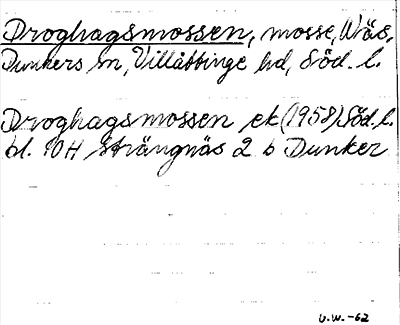 Droghagsmossen, mosse, Wräs,
Dunkers sn, Villåttinge hd, Söd. l.
Droghagsmossen ek (1958) Söd. l.
bl. 10H Strängnäs 2 b Dunker
U.W.-62